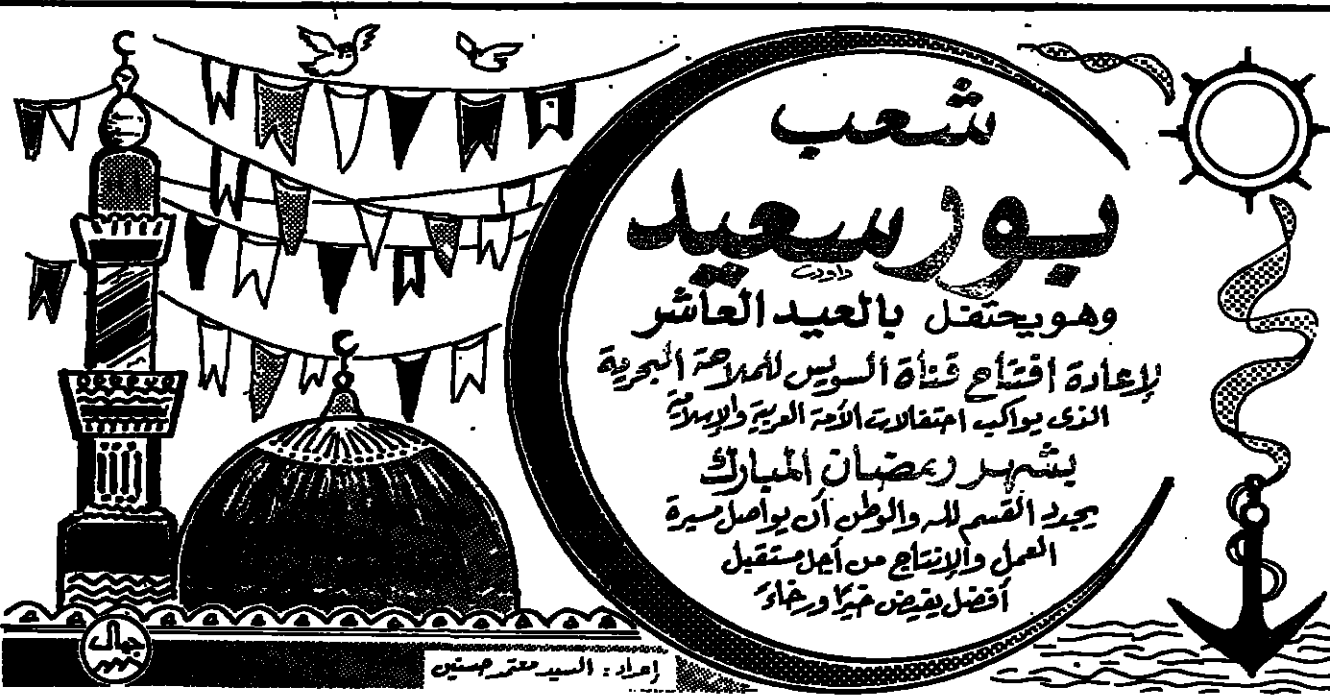 شعب
بورسعيد
وهو يحتفل بالعيد العاشر
لإعادة افتتاح قناة السويس للملاحة البحرية
الذى يواكب احتفالات الأمة العربية والإسلامية
بشهر رمضان المبارك
يجدد القسم لله والوطن أن يواصل مسيرة
العمل والإنتاج من أجل مستقبل
أفضل يفيض خيرًا ورخاءً
جمال
إعداد : السيد معتمر حسنين